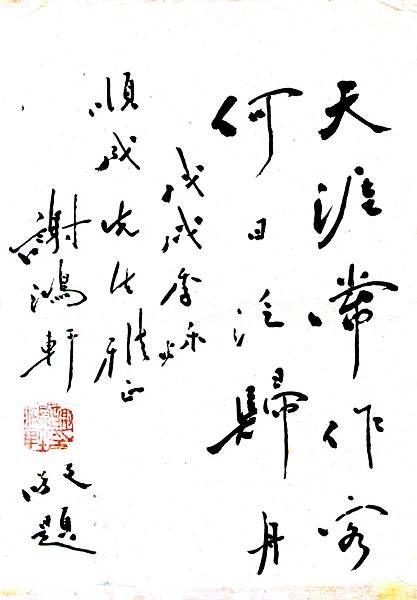 天涯常作客
何日泛歸舟
戊戌季秋
順成先生雅正
謝鴻軒
題